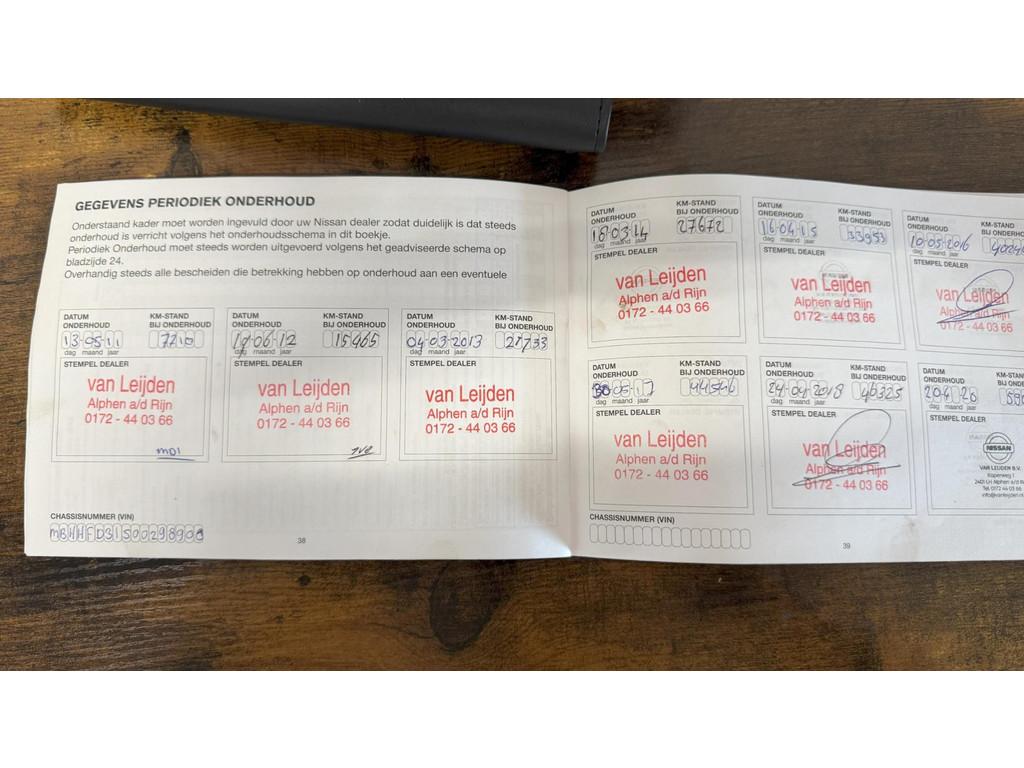 GEGEVENS PERIODIEK ONDERHOUD
Onderstaand kader moet worden ingevuld door uw Nissan dealer zodat duidelijk is dat steeds
onderhoud is verricht volgens het onderhoudsschema in dit boekje.
Periodiek Onderhoud moet steeds worden uitgevoerd volgens het geadviseerde schema op
bladzijde 24.
Overhandig steeds alle bescheiden die betrekking hebben op onderhoud aan een eventuele
DATUM ONDERHOUD
KM-STAND BIJ ONDERHOUD
13-05-11
7710
dag maand jaar
STEMPEL DEALER
van Leijden
Alphen a/d Rijn
0172 - 44 03 66
MD1
DATUM ONDERHOUD
KM-STAND BIJ ONDERHOUD
06-12
15465
dag maand jaar
STEMPEL DEALER
van Leijden
Alphen a/d Rijn
0172 - 44 03 66
DATUM ONDERHOUD
KM-STAND BIJ ONDERHOUD
04-03-2013
21733
dag maand jaar
STEMPEL DEALER
van Leijden
Alphen a/d Rijn
0172 - 44 03 66
CHASSISNUMMER (VIN)
38
DATUM ONDERHOUD
KM-STAND BIJ ONDERHOUD
18-03-14
27672
dag maand jaar
STEMPEL DEALER
van Leijden
Alphen a/d Rijn
0172 - 44 03 66
DATUM ONDERHOUD
KM-STAND BIJ ONDERHOUD
16-04-15
33953
dag maand jaar
STEMPEL DEALER
van Leijden
Alphen a/d Rijn
0172 - 44 03 66
DATUM ONDERHOUD
KM-STAND
BIJ ONDERH
10-05-2016
dag maand jaar
STEMPEL DEALER
van Leijden
Alphen a/d Rijn
0172 - 44 03 66
DATUM ONDERHOUD
KM-STAND BIJ ONDERHOUD
05-17
44546
dag maand jaar
STEMPEL DEALER
van Leijden
Alphen a/d Rijn
0172 - 44 03 66
DATUM ONDERHOUD
KM-STAND BIJ ONDERHOUD
24-04-2018
dag maand jaar
STEMPEL DEALER
van Leijden
Alphen a/d Rijn
0172 - 44 03 66
DATUM ONDERHOUD
KM-ST
BIJ ON
dag maand jaar
STEMPEL DEALER
NISSAN
VAN LEIJDEN B.V.
Kopenweg 1
2401 LH Alphen a/d R
Tel. 0172 44 03 66
info@vanleijden.n
CHASSISNUMMER (VIN)
39